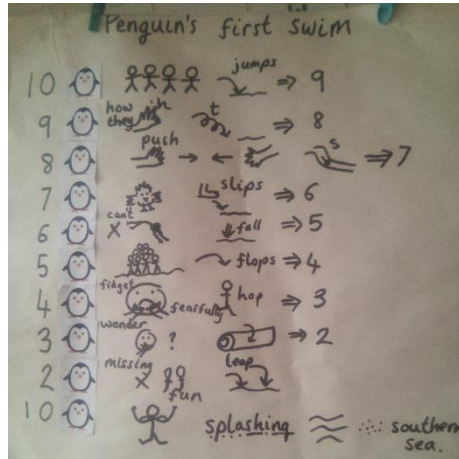 Penguin's first swim
10 jumps ⇒ 9
9 how they t ⇒ 8
8 push → ← s ⇒ 7
7 slips ⇒ 6
6 can't X fall ⇒ 5
5 flops ⇒ 4
4 fidget fearfully hop ⇒ 3
3 wonder ? ⇒ 2
2 missing X fun leap
10 splashing southern sea.